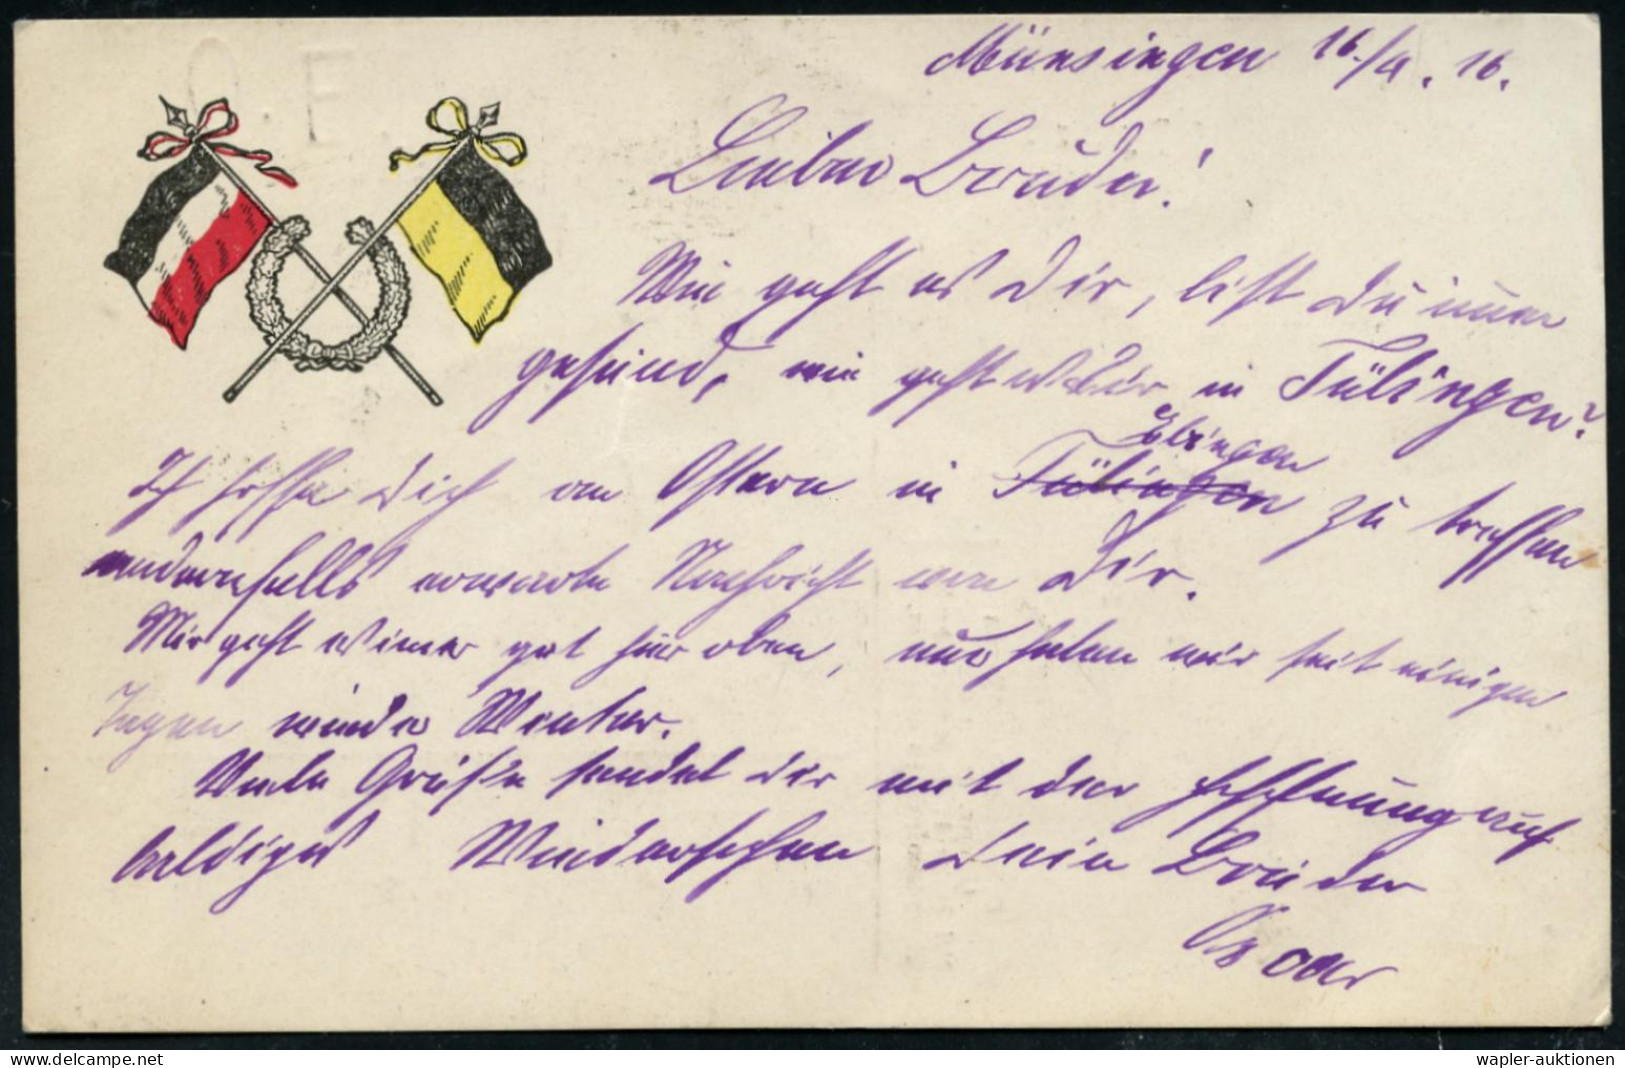 Münsingen 16./4. 16.
Lieber Bruder!
Wie geht es Dir, bist Du immer
gesund, wie geht es Dir in Tübingen?
Ebingen
Ich hoffe Dich an Ostern in Tübingen zu treffen
andernfalls erwarte Nachricht von Dir.
Mir geht es immer gut hier oben, nur haben wir seit einigen
Tagen wieder Winter.
Viele Grüße sendet Dir mit der Hoffnung auf
baldiges Wiedersehen Dein Bruder
Oskar
hippostcard.com
wapler-auktionen